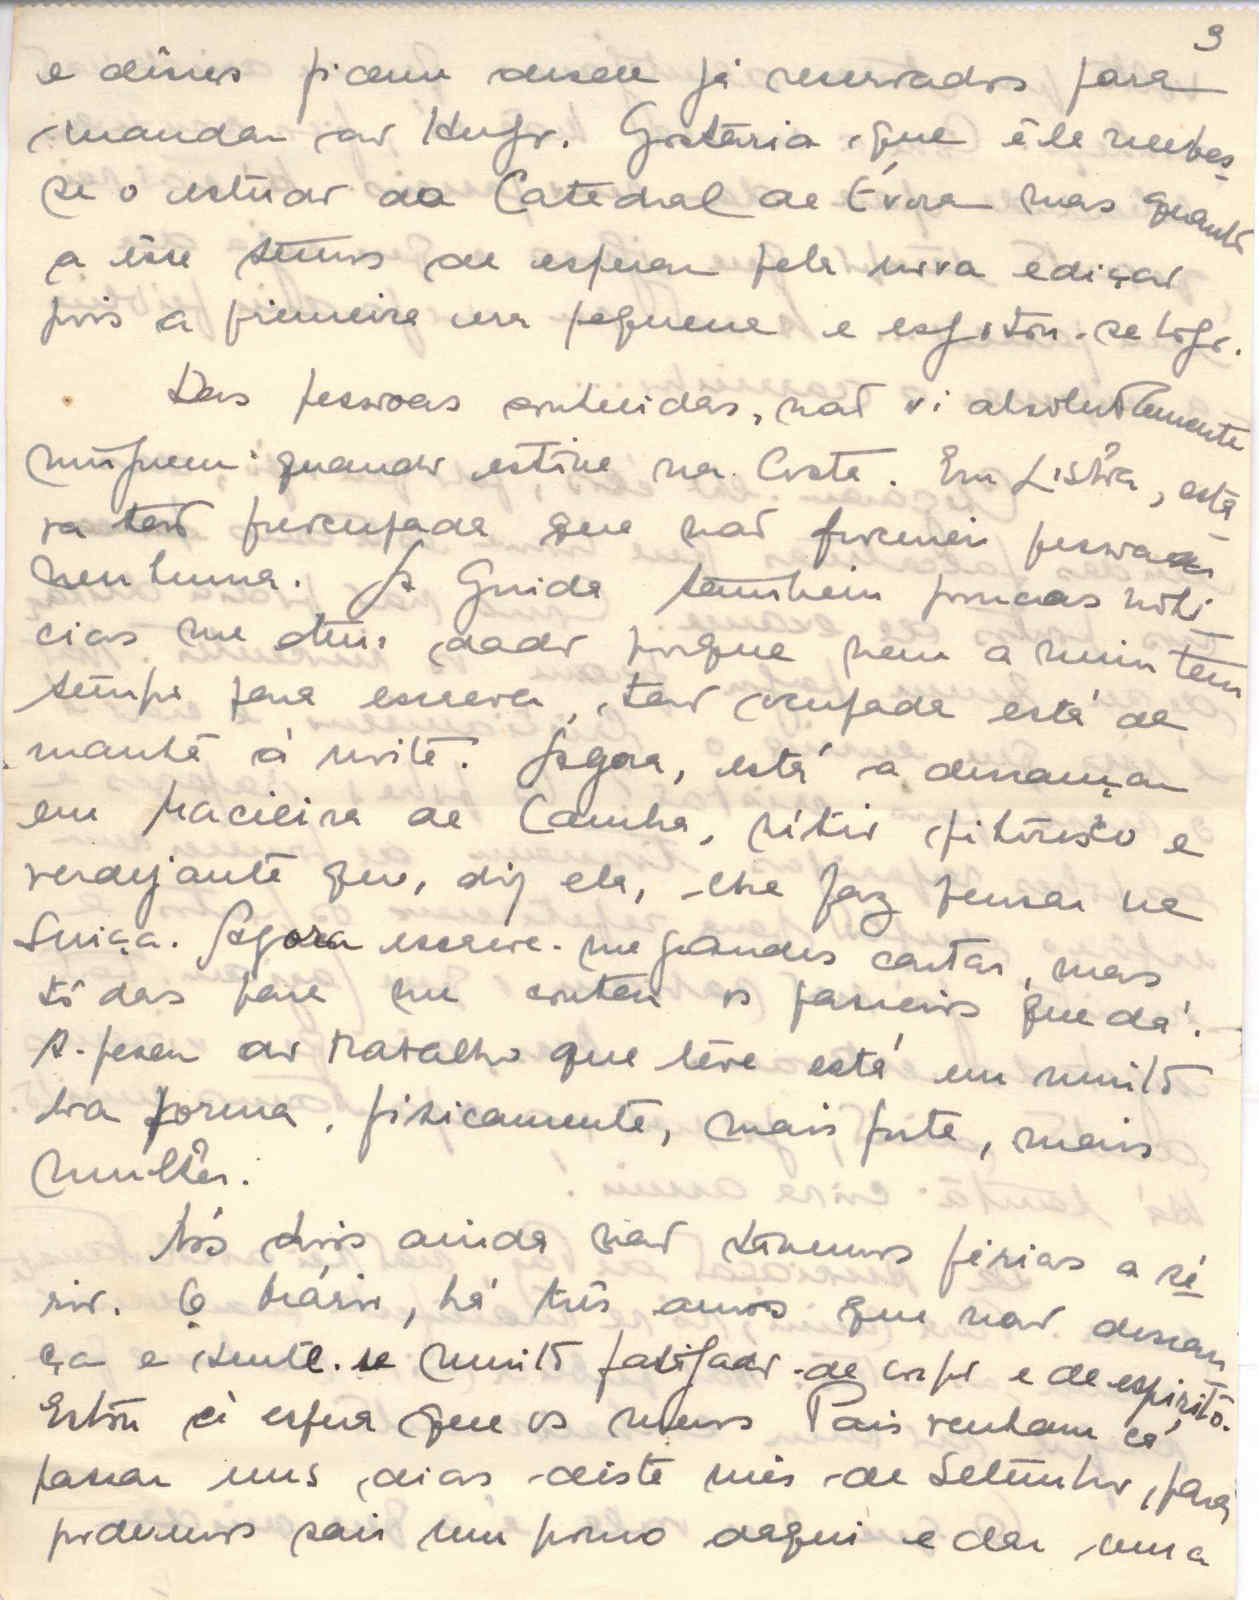 3
e dêsses ficam desde já reservados para
mandar ao Hugo. Gostaria que êle recebes-
se o estudo da Catedral de Évora mas quanto
a êsse temos de esperar pela nova edição
pois a primeira era pequena e esgotou-se logo.
Das pessoas conhecidas, não vi absolutamente
ninguem quando estive na Costa. Em Lisbôa, esta-
va tão preocupada que não procurei pessoa
nenhuma. A Guida tambem poucas notí-
cias me tem dado porque nem a mim tem
tempo para escrever, tão ocupada está de
manhã à noite. Agora, está a descançar
em Macieira de Cambra, sítio pitoresco e
verdejante que, diz ela, lhe faz pensar na
Suiça. Agora escreve-me grandes cartas, mas
tôdas para me contar os passeios que dá.
Apesar do trabalho que teve está em muito
boa forma, fisicamente, mais forte, mais
mulhêr.
Nós dois ainda não tivemos férias a sé-
rio. O Mário, há três anos que não descan-
ça e sente-se muito fatigado de corpo e de espirito.
Estou à espera que os meus Pais venham cá
passar uns dias dêste mês de Setembro, para
podermos sair um pouco daqui e dar uma